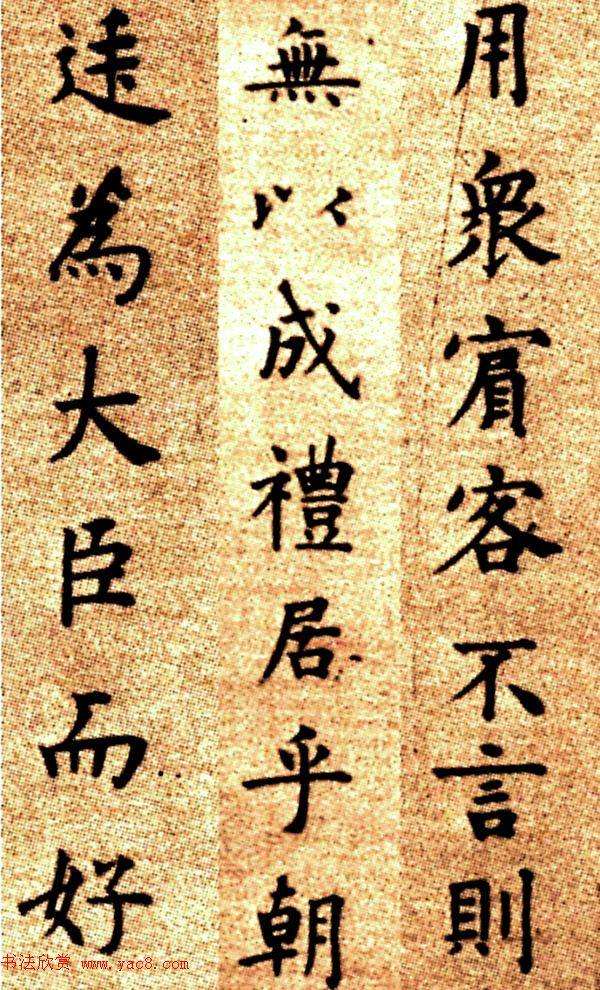 用衆賓客不言則
無以成禮居乎朝
廷爲大臣而好
书法欣赏 www.yac8.com